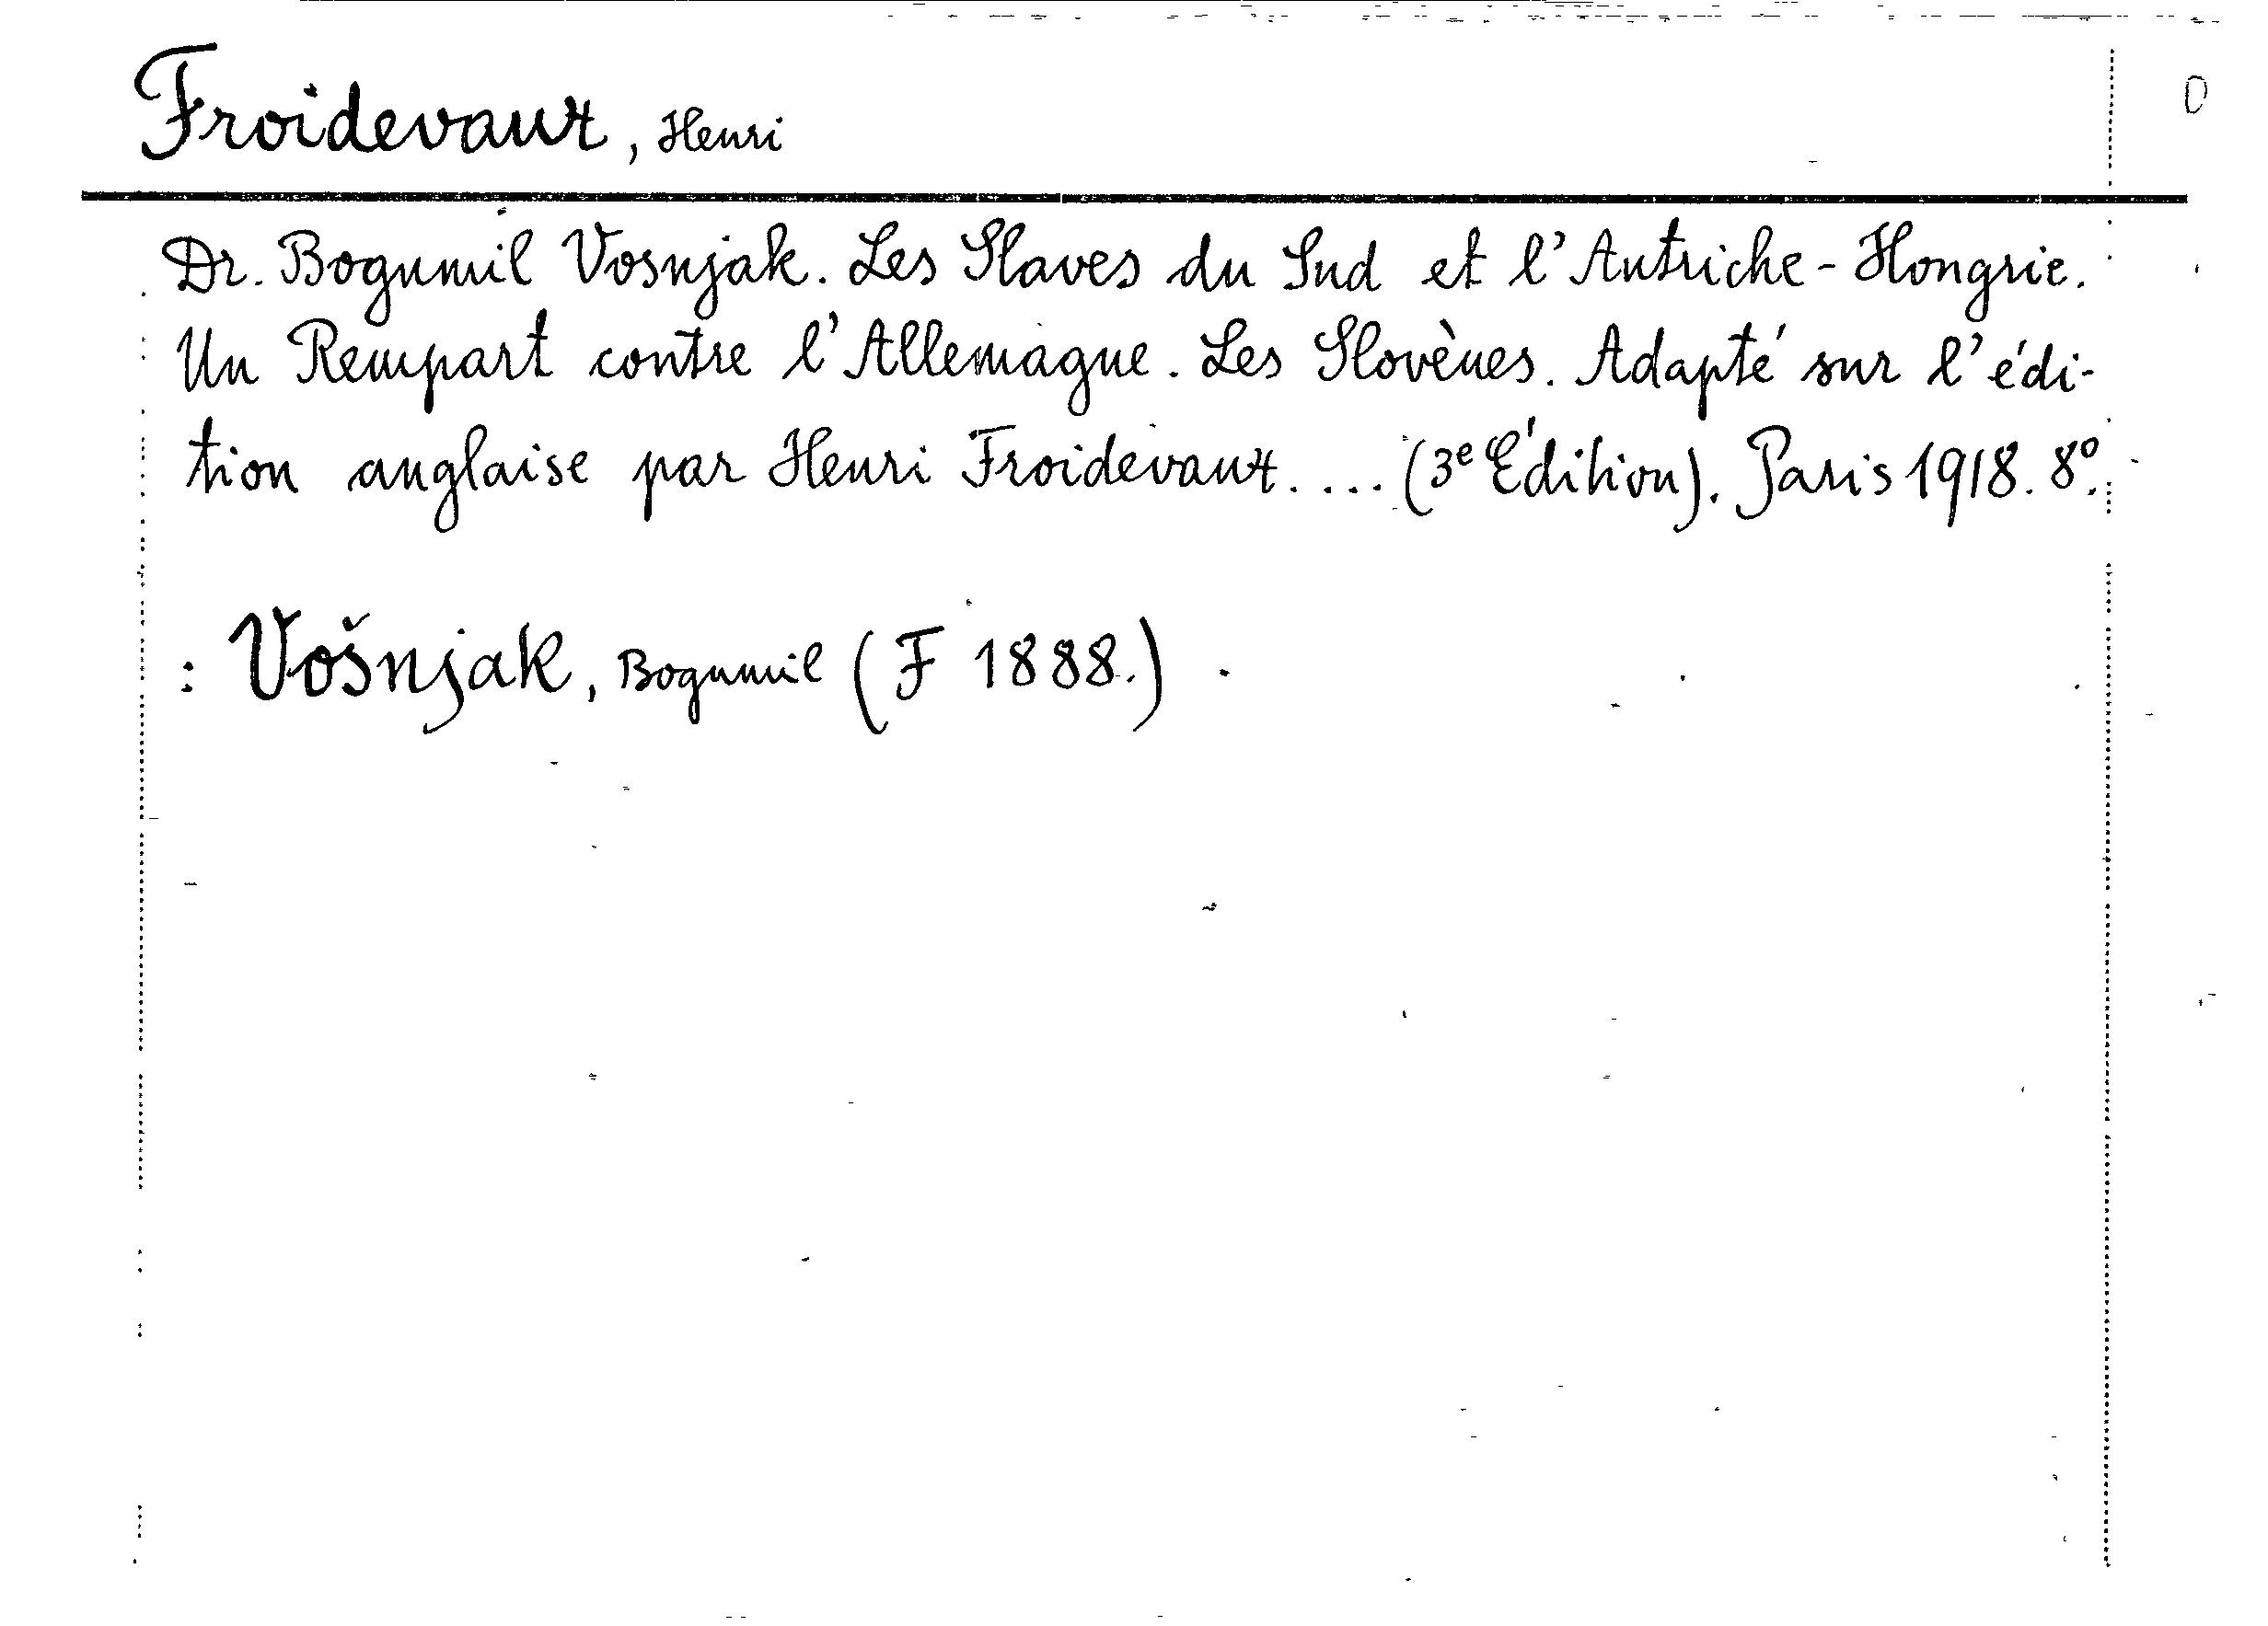 Froidevaux, Henri
D
Dr. Bogumil Vosnjak. Les Slaves du Sud et l'Autriche-Hongrie.
Un Rempart contre l'Allemagne. Les Slovènes. Adapté sur l'édi-
tion anglaise par Henri Froidevaux. ... (3e Édition). Paris 1918. 8°.
: Vošnjak, Bogumil (F 1888.)